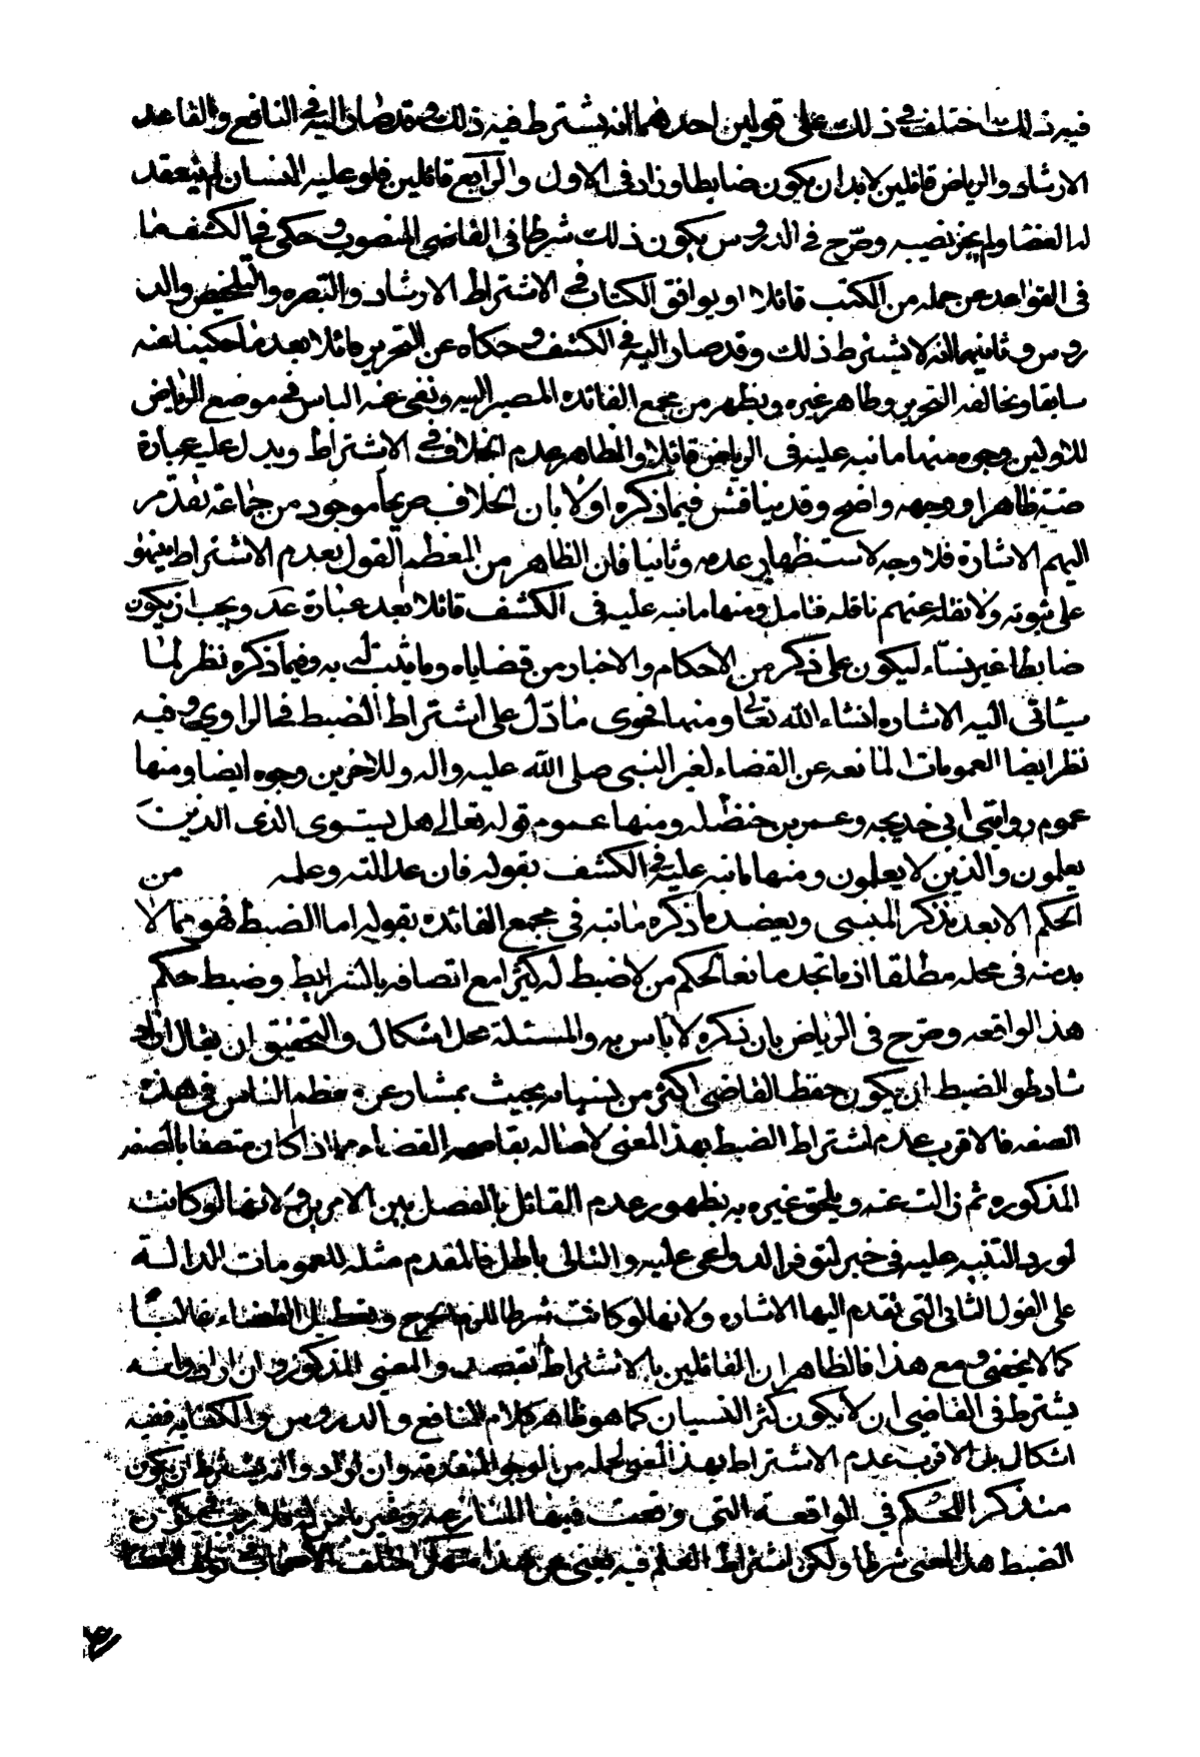 فيه ذلك اختلف في ذلك على قولين احدهما انه يشترط فيه ذلك وقد صار اليه في النافع والقاعد
الارشاد والرياض قائلين لابد ان يكون ضابطا وزاد في الاول والرابع قائلين فلو غلبه النسيان لم ينعقد
له القضا ولم يجز نصبه وصرّح في الدروس بكون ذلك شرطا في القاضي المنصوب وحكى في الكشف ما
في القواعد عن جمله من الكتب قائلا ويوافق الكتاب في الاشتراط الارشاد والتبصره والتلخيص والد
روس و ثانيهما انه لا يشترط ذلك وقد صار اليه في الكشف وحكاه عن التحرير قائلا بعد ما حكينا عنه
سابقا ويخالفه التحرير وظاهر غيره ويظهر من مجمع الفائده المصير اليه ونفى عنه الباس في موضع الرياض
للاولين وجوه منها ما نبه عليه في الرياض قائلا والظاهر عدم الخلاف في الاشتراط ويدل عليه عبارة
ظاهرا ووجهه واضح وقد يناقش فيما ذكره اولا بان الخلاف صريحا موجود من جماعة تقدّم
اليهم الاشارة فلا وجه لاستظهار عدمه وثانيا فان الظاهر من المعظم القول بعدم الاشتراط
على ثبوته ولا نقله عنهم ناقله فتامل ومنها ما نبه عليه في الكشف قائلا بعد عبارة عد ويجب ان يكون
ضابطا غير نسّاء ليكون على ذكر من الاحكام والاخبار من قضاياه وما يثبت به وفيما ذكره نظر لما
سياتى اليه الاشاره انشاء الله تعالى ومنها فحوى ما دل على اشتراط الضبط في الراوي وفيه
نظر ايضا العمومات المانعه عن القضاء لغير النبي صلى الله عليه واله وللاخرين وجوه ايضا ومنها
عموم روايتي ابي خديجه وعمر بن حنضله ومنها عموم قوله تعالى هل يستوى الذى الذين
يعلمون والذين لا يعلمون ومنها ما نبه عليه في الكشف بقوله فان عدالته وعلمه من
الحكم الا بعد تذكر المنسى ويعضد ما ذكره ما نبه في مجمع الفائده بقوله اما الضبط فهو مما لا
بد منه في محله مطلقا اذ ما تجد مانعا لحكم من لا ضبط له كثيرا مع اتصافه بالشرايط وضبط حكم
هذ الواقعه وصرّح في الرياض بان ذكره لا باس به والمسئلة محل اشكال والتحقيق ان يقال ان اراد
شارطو الضبط ان يكون حفظ القاضي اكثر من نسيانه بحيث يمتاز عن معظم الناس في هذه
الصفه فالاقرب عدم اشتراط الضبط بهذ المعنى لاصاله بقاء القضاء فيما اذا كان متصفا بالصفه
المذكوره ثم زالت عنه ويلحق غيره به بظهور عدم القائل بالفصل بين الامرين ولانها لو كانت
لورد التنبيه عليه في خبر لتوفر الدواعى عليه والتالى باطل فالمقدم مثله للعمومات الدالة
على القول الثانى التى تقدم اليها الاشاره ولانها لو كانت شرطا للزم الحرج وتعطيل القضاء غالبًا
كما لا يخفى ومع هذا فالظاهر ان القائلين بالاشتراط لم يقصدوا المعنى المذكور وان ارادوا انه
يشترط في القاضي ان لا يكون كثير النسيان كما هو ظاهر كلام النافع والدروس والكفايه ففيه
اشكال بل الاقرب عدم الاشتراط بهذ المعنى لجمله من الوجوه المتقدمة وان ارادوا انه يشترط ان يكون
متذكر اللحكم في الواقعة التي وقعت فيها المنازعه
الضبط هذ المعنى شرطا ولكن اشتراط العلم فيه يغنى عن هذا